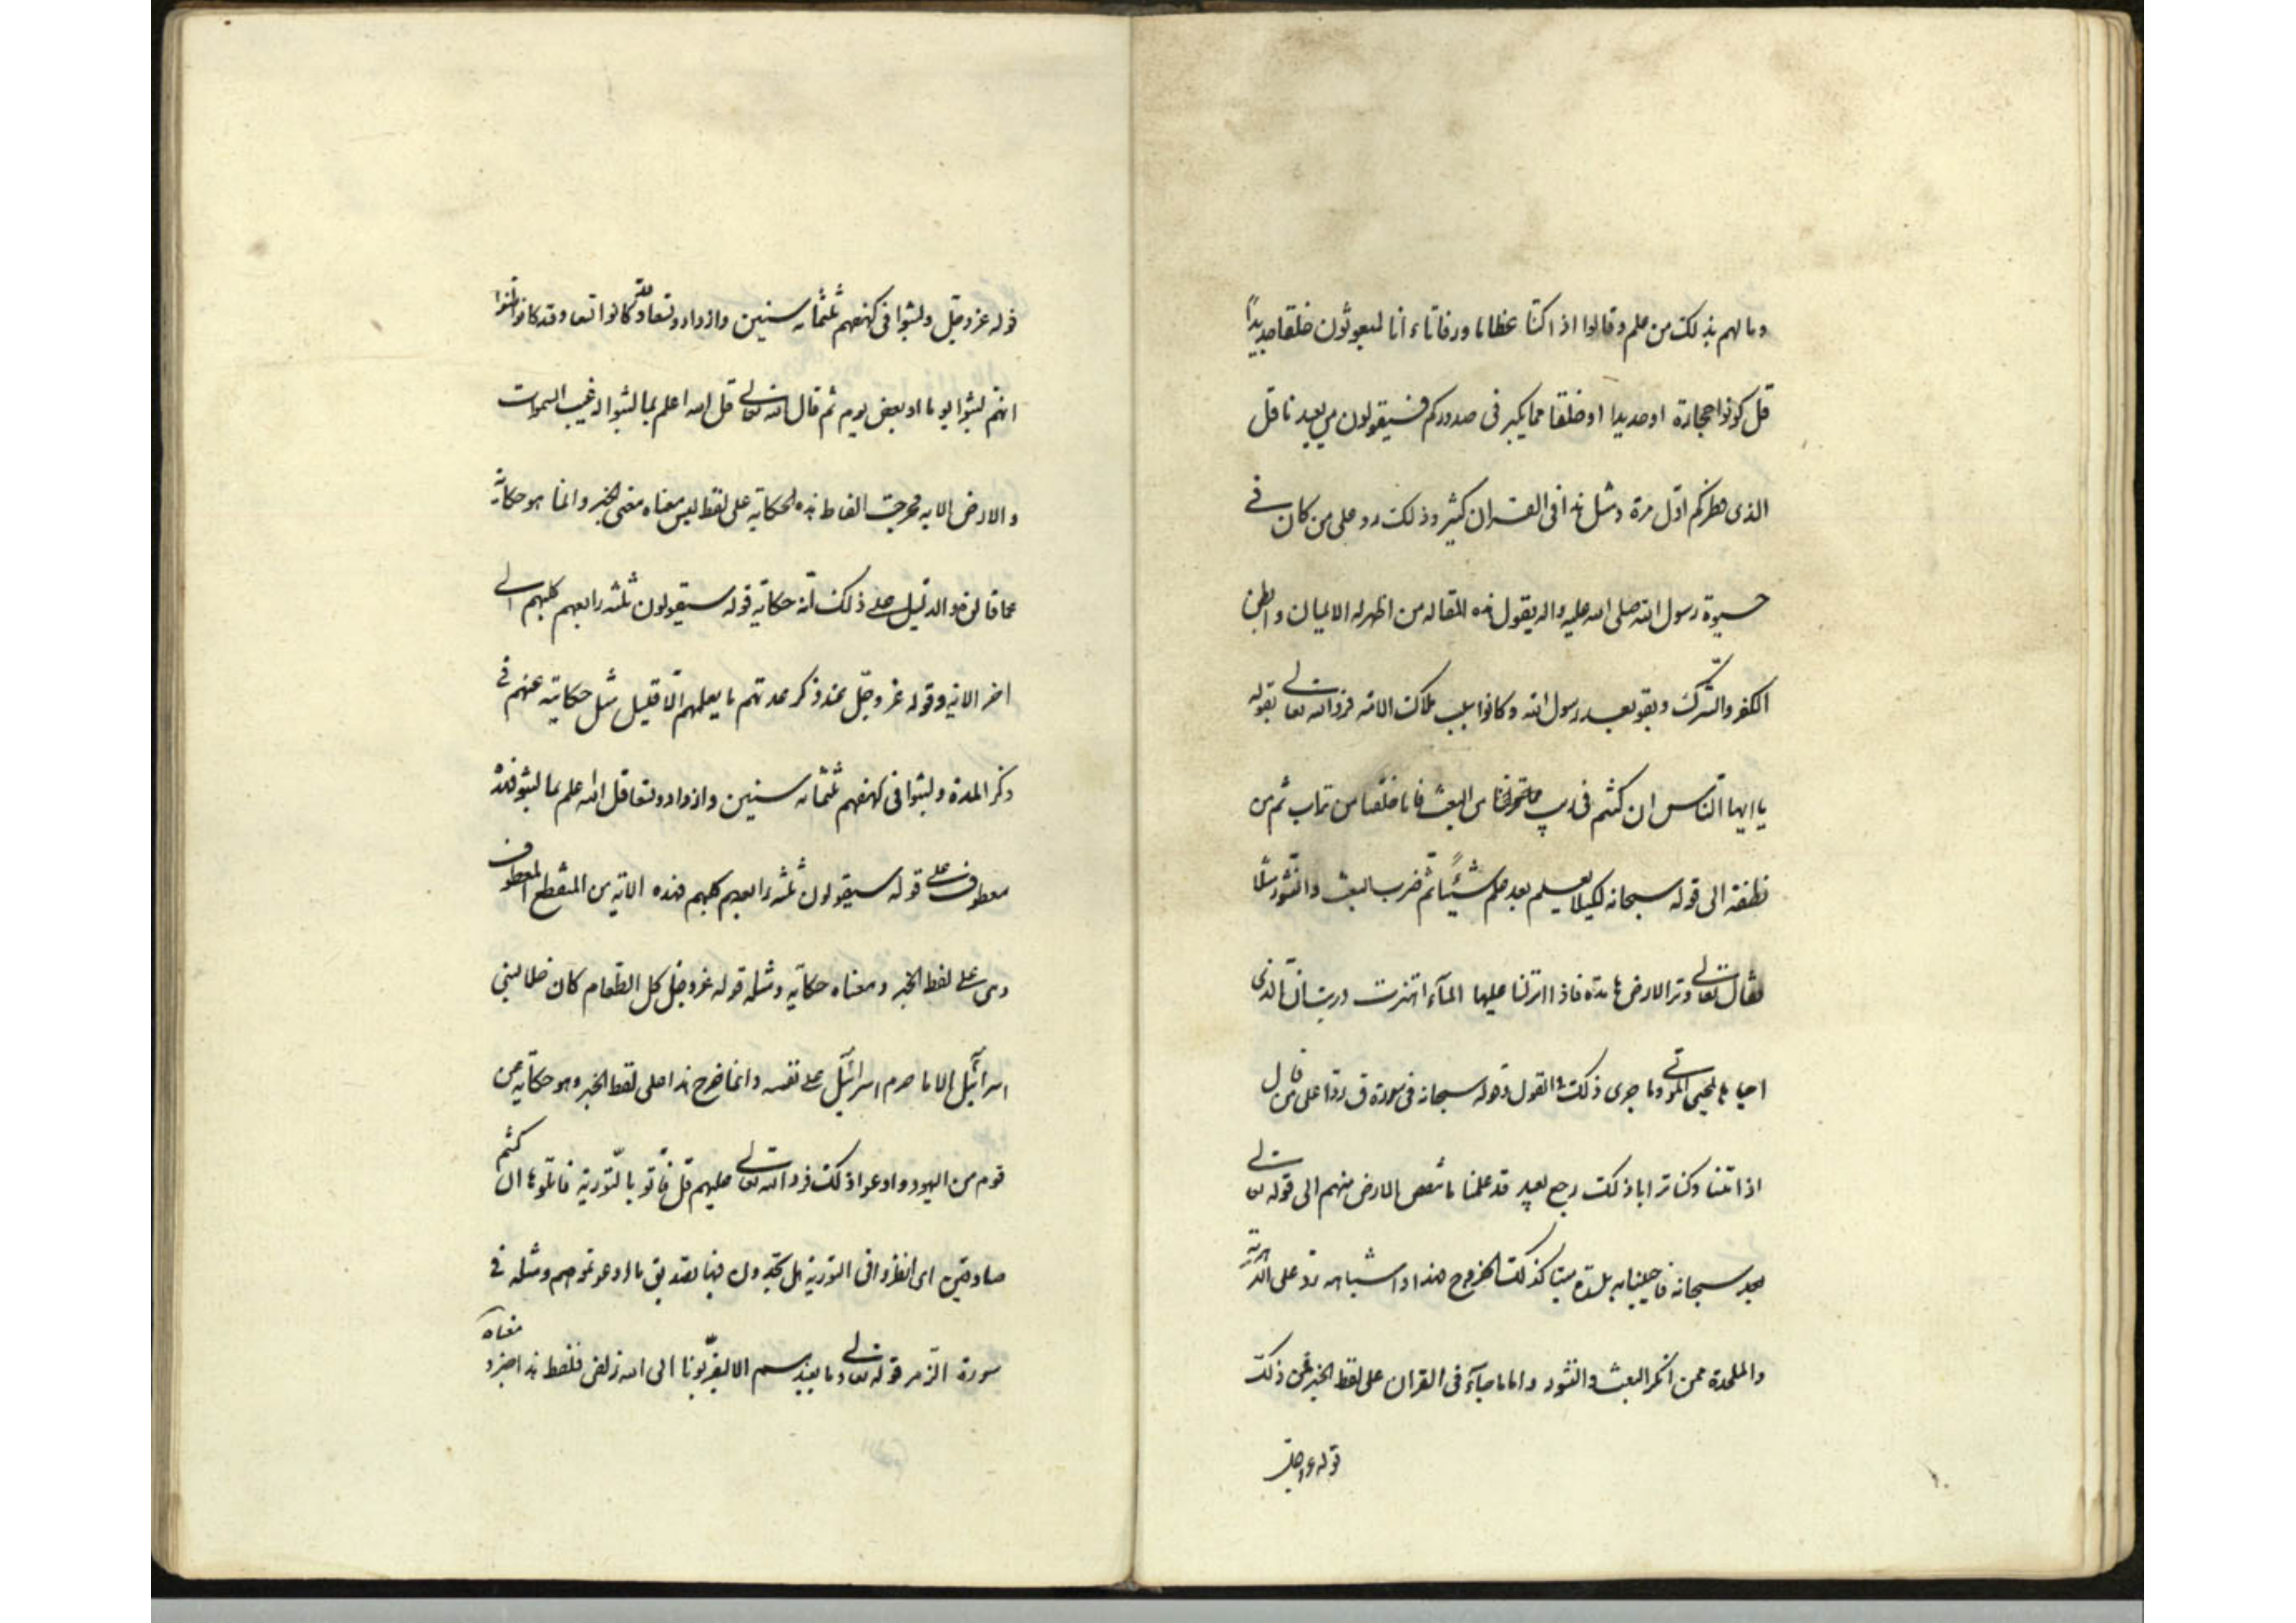 وما لهم بذلك من علم وقالوا اذا كنا عظاما ورفاتا ءانا لمبعوثون خلقا جديدا
قل كونوا حجارة او حديدا او خلقا مما يكبر فى صدوركم فسيقولون من يعيدنا قل
الذى فطركم اول مرة ومثل هذا فى القران كثير وذلك رد على من كان فى
حيوة رسول الله صلى الله عليه واله يقول هذه المقاله من اظهر له الايمان وابطن
الكفر والشرك وبقو بعد رسول الله وكانوا سبب هلاك الامة فرد الله تعالى بقوله
يا ايها الناس ان كنتم فى ريب من البعث فانا خلقناكم من تراب ثم من
نطفة الى قوله سبحانه لكيلا يعلم بعد علم شيئا ثم ضرب للبعث والنشور مثلا
فقال تعالى وترا الارض هامدة فاذا انزلنا عليها المآء اهتزت وربت ان الذى
احياها لمحيى الموتى وما جرى ذلك القول وقوله سبحانه فى سورة ق ردا على من قال
اذا متنا وكنا ترابا ذلك رجع بعيد قد علمنا ما تنقص الارض منهم الى قوله تعالى
سبحانه فاحيينا به بلدة ميتا كذلك الخروج فهذا واشباهه رد على الدهرية
والملحدة ممن انكر البعث والنشور واما ما جآء فى القران على لفظ الخبر فمن ذلك
قوله عز وجل
قوله عز وجل ولبثوا فى كهفهم ثلثمائه سنين وازدادو تسعا وقد كانوا ظنوا
انهم لبثوا يوما او بعض يوم ثم قال الله تعالى قل الله اعلم بما لبثوا له غيب السموات
والارض الايه فخرجت الفاظ هذه الحكاية على لفظ ليس معناه معنى الخبر وانما هو حكاية
عما قالوه والدليل على ذلك انه حكاية قوله سيقولون ثلثه رابعهم كلبهم الى
اخر الاية وقوله عز وجل عند ذكر عدتهم ما يعلمهم الا قليل مثل حكايته عنهم فى
ذكر المدة ولبثوا فى كهفهم ثلثمائه سنين وازدادو تسعا قل الله اعلم بما لبثو فهذا
معطوف على قوله سيقولون ثلثه رابعهم كلبهم فهذه الاية من المنقطع المعطوف
وهى على لفظ الخبر ومعناه حكاية ومثله قوله عز وجل كل الطعام كان حلا لبنى
اسرآئيل الا ما حرم اسرآئيل على نفسه وانما خرج هذا على لفظ الخبر وهو حكاية عن
قوم من اليهود وادعوا ذلك فرد الله تعالى عليهم قل فأتو بالتورية فاتلوها ان كنتم
صادقين اى انظروا فى التورية هل تجدون فيها تصديق ما ادعوتموهم ومثله فى
سورة الزمر قوله تعالى وما نعبدهم الا ليقربونا الى الله زلفى فلفظ هذا خبر ومعناه